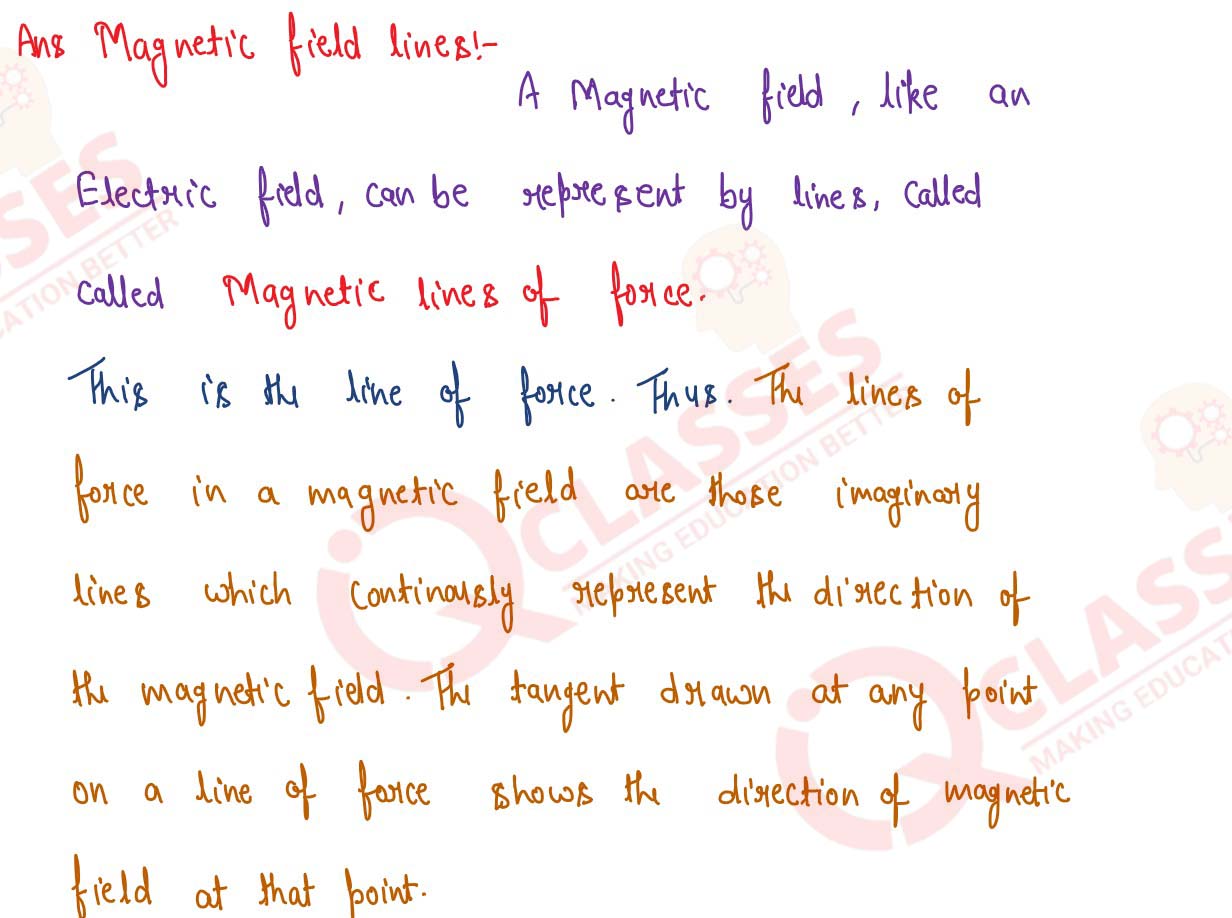 Ans Magnetic field lines:-
A Magnetic field, like an
Electric field, can be represent by lines, Called
called Magnetic lines of force.
This is the line of force. Thus. The lines of
force in a magnetic field are those imaginary
lines which continously represent the direction of
the magnetic field. The tangent drawn at any point
on a line of force shows the direction of magnetic
field at that point.
SSES
CATION BETTER
IQ CLASSES
MAKING EDUCATION BETTER
IQ CLASSES
MAKING EDUCAT